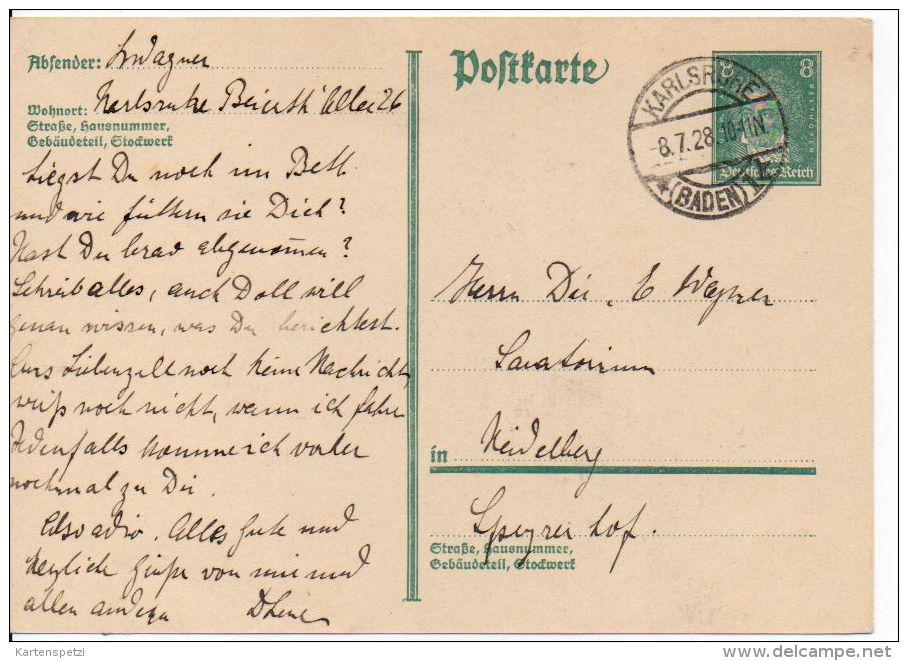 Absender: Wagner
Wohnort: Karlsruhe Beierth Allee 26
Straße, Hausnummer,
Gebäudeteil, Stockwerk
Liegst Du noch im Bett
und wie füttern sie Dich?
Hast Du brav abgenommen?
Schreib alles, auch Doll will
genau wissen, was Du berichtest.
Aus Liebenzell noch keine Nachricht,
weiß noch nicht, wann ich fahre
Jedenfalls komme ich vorher
nochmal zu Dir.
Also adio. Alles Gute und
herzliche Grüße von mir und
allen andern
Postkarte
KARLSRUHE
-8.7.28.10-11N.
(BADEN)
8 8
Deutsches Reich
Herrn Dir. E Wagner
Sanatorium
in Heidelberg
Speyrer hof.
Straße, Hausnummer,
Gebäudeteil, Stockwerk
Kartenspetzi
delcampe.net